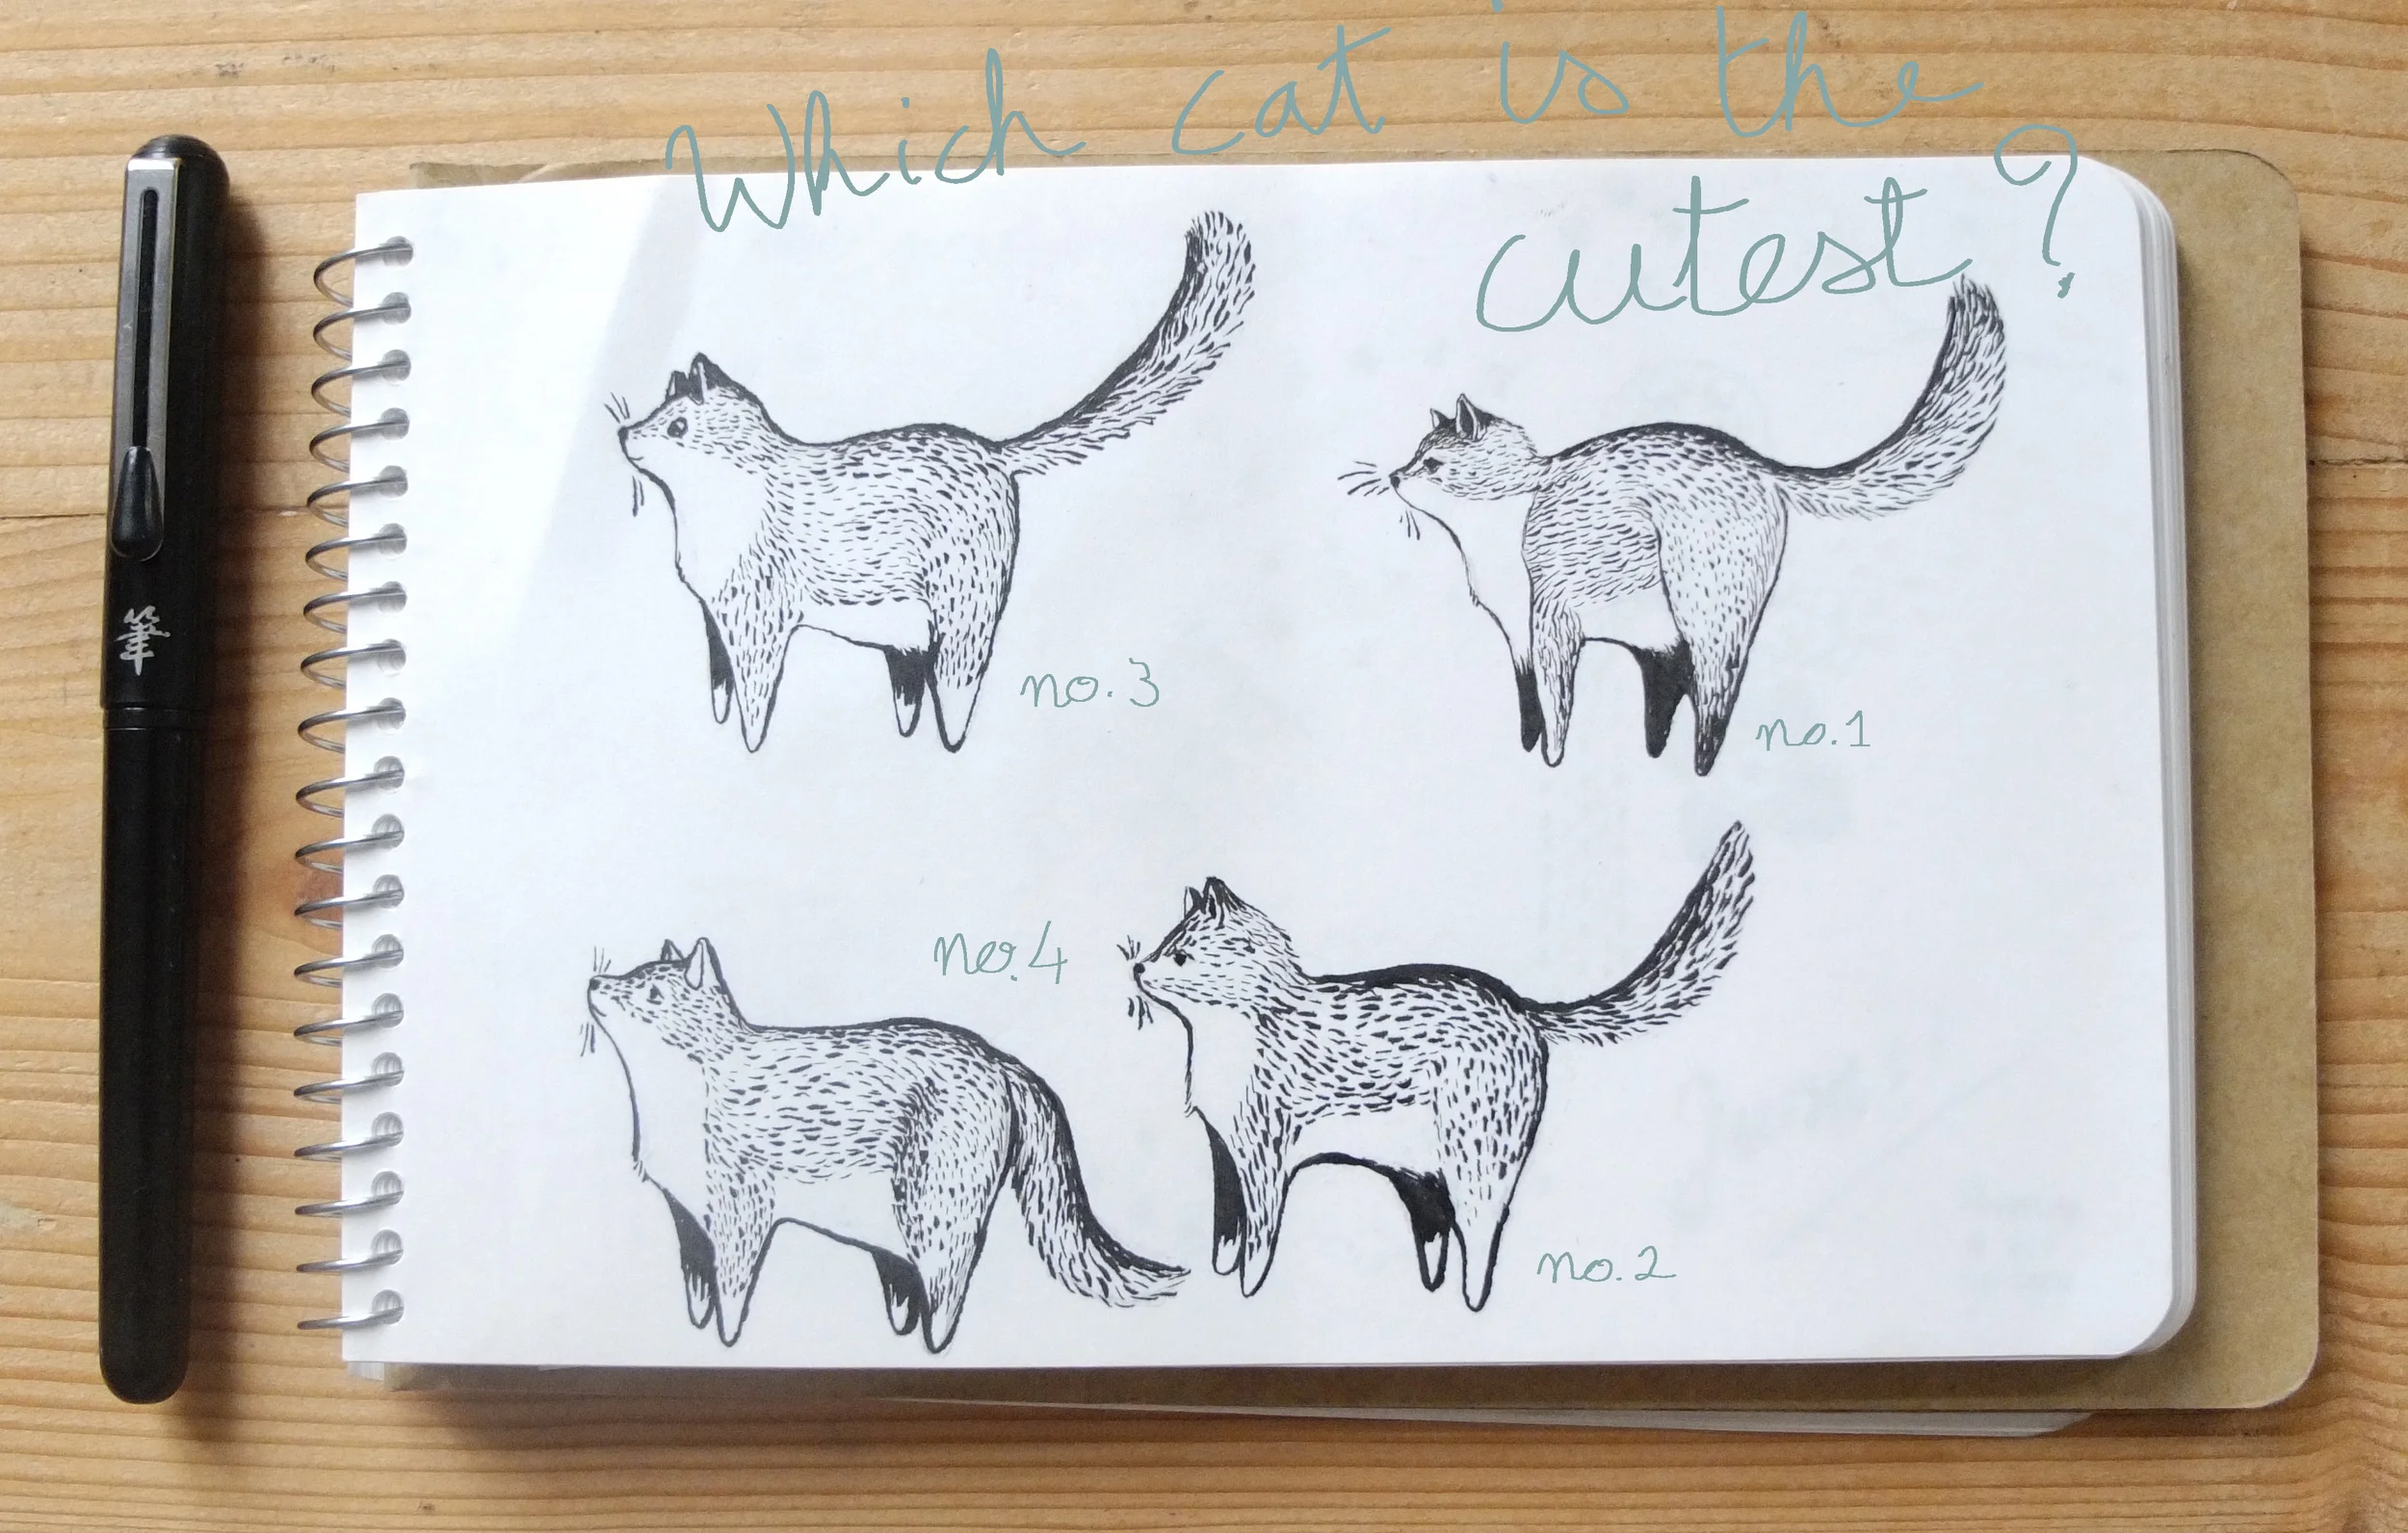 Which cat is the
cutest?
筆
no.3
no.1
no.4
no.2